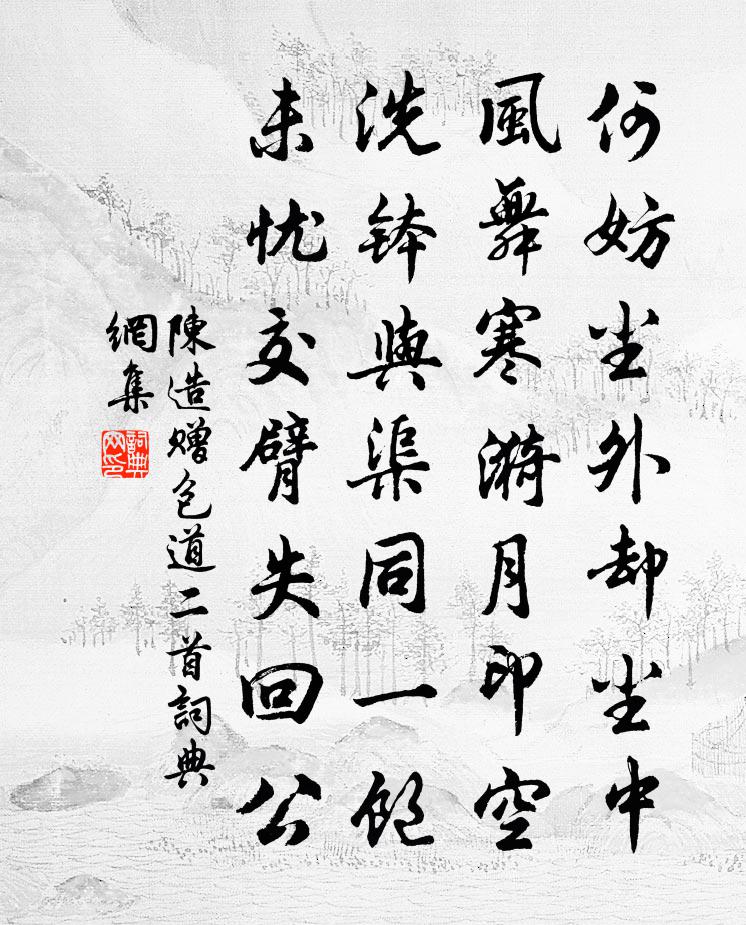 何妨尘外却尘中
風舞寒漪月印空
洗鉢與渠同一飽
未忧交臂失回公
陳造赠包道二首詞典
網集
詞典
网印